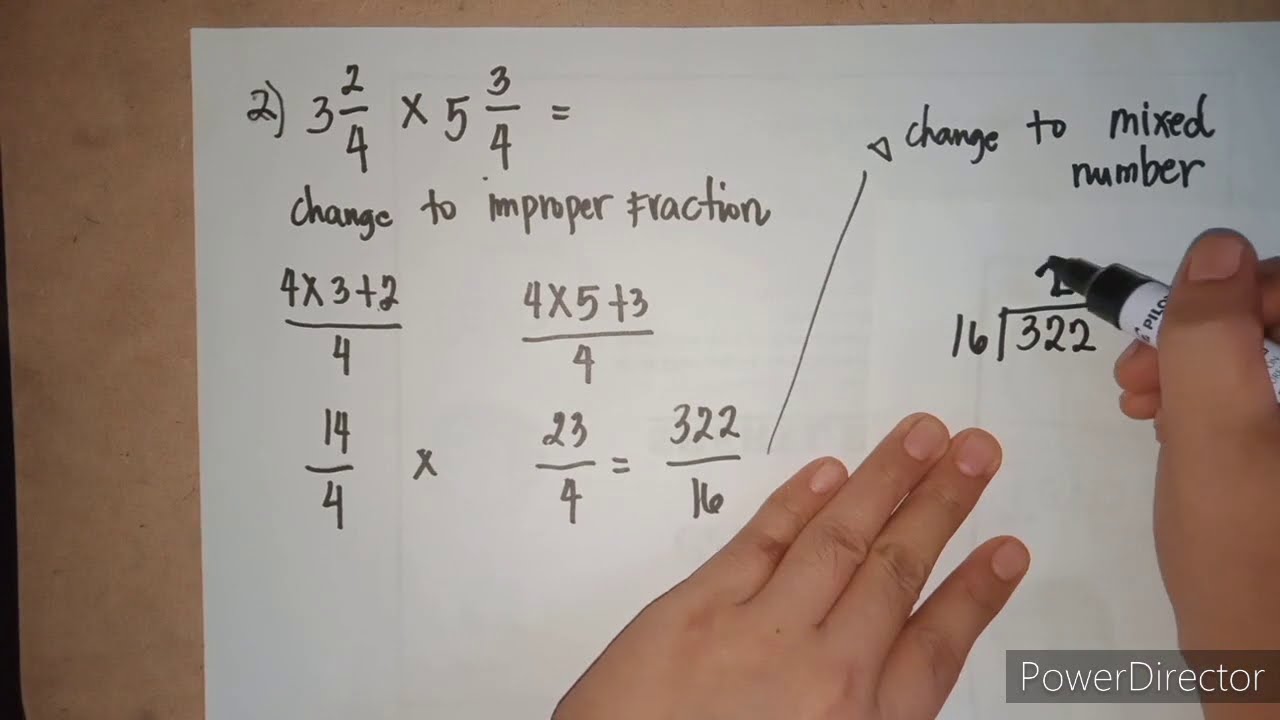 2) 3 2/4 × 5 3/4 =
change to improper fraction
4×3+2/4 4×5+3/4
14/4 × 23/4 = 322/16
change to mixed
number
2
16 322
PILOT
PowerDirector